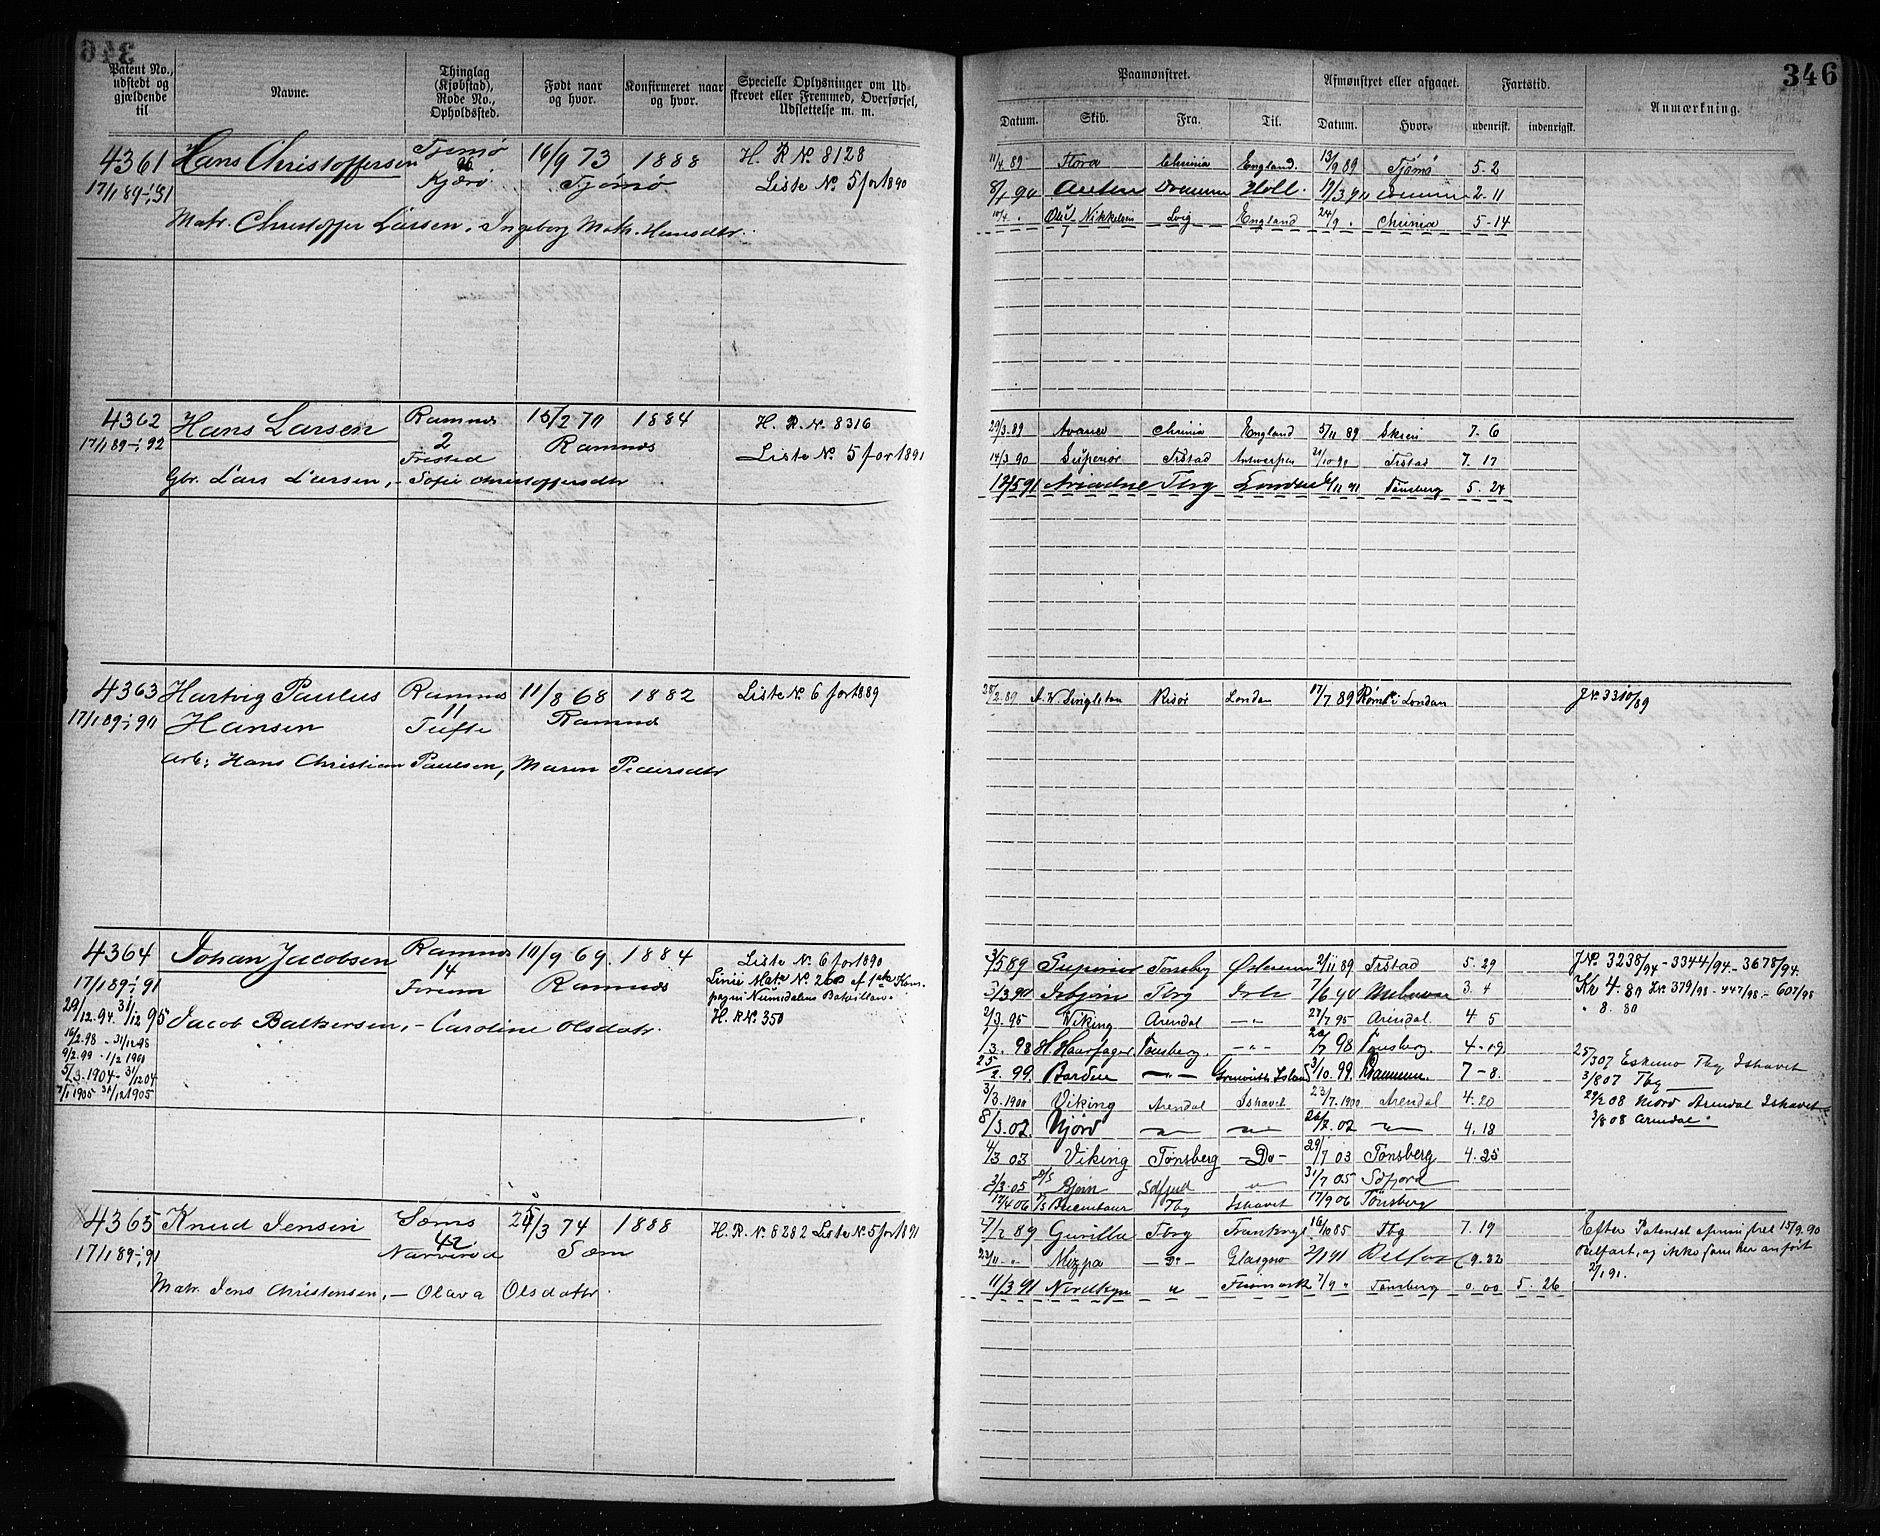 346
Patent No., udstedt og gjældende til
Navne.
Thinglag (Kjøbstad), Rode No., Opholdssted.
Født naar og hvor.
Konfirmeret naar og hvor.
Specielle Oplysninger om Udskrevet eller Fremmed, Overførsel, Udslettelse m. m.
Paamønstret.
Afmønstret eller afgaaet.
Fartstid.
Anmærkning.
Datum. Skib. Fra. Til. Datum. Hvor. udenrigsk. indenrigsk.
4361 Hans Christoffersen Tjømø 16/9 73 1888 H. R. No 8128
17/1 89 - 1/1 91 Kjærø Tjømø Liste No. 5 for 1890
Matr. Christoffer Larsen, Ingeborg Math. Hansdtr.
11/4 89 Flora Chrinia England 13/9 89 Tjømø 5. 2
8/1 90 Holl. 19/3 90 2-11
England 24/9 Chrinia 5-14
4362 Hans Larsen Ramnæs 15/2 70 1884 H. R. No. 8316
17/1 89 - 1/1 92 2 Ramnæs Liste No. 5 for 1891
Gbr. Lars Larsen, - Sofie Christoffersdtr
29/3. 89 Chrinia England 5/11 89 Skien 7. 6
14/3 90 Superiør Frstad Antwerpen Frstad 7. 17
12/5 91 Ariadne Tbg London 11 91 Tønsberg 5. 24
4363 Hartvig Paulus Ramnæs 11/8 68 1882 Liste No. 6 for 1889
17/1 89 - 1/1 90 Hansen 11 Tufte Ramnæs
Arb: Hans Christian Paulsen, Maren Pedersdtr
A. W. Singleton Risør London 17/7 89 Rømt i London J No. 3310/89
4364 Johan Jacobsen Ramnæs 10/9 69. 1884 Liste No. 6 for 1890
17/1 89 - 1/1 91 14 Ramnæs Linie Matr. No. 260 af 1ste Kom-
29/12. 94. 31/12 95 pagni Numedalens Bataillon.
Jacob Balkersen, - Caroline Olsdatr. H. R No. 350
16/2. 98 - 31/12 98
9/2. 99 - 1/2 1900
5/3. 1904 - 31/12 04
7/1 1905 31/12 1905
3/5 89 Superiør Tønsbg Østersøen 2/11 89 Frstad 5. 29 J No. 3238/94 - 3344/94 - 3678/94.
5/3. 90 Isbjørn Tbg 7/6 90 3. 4 Kr 4. 80 J No. 379/98 - 447/98 - 607/98
2/3. 95 Viking Arendal -"- 27/7 95 Arendal 4 5 " 8. 80
1/3. 98 H. Haarfager Tønsberg. -"- 7 98 Tønsberg. 4-19
99. -"- 3/10. 99. 7-8. 25/3 07 Eskimo Tbg Ishavet
3/3. 1900 Viking Arendal Ishavet 23/7. 1900 Arendal 4. 20 3/8 07 Tbg
8/3. 02. Njord 02 4. 18 29/2 08 Njord Arendal Ishavet
4/3 03 Viking Tønsberg -Do- 29/7 03 Tønsberg 4. 25 3/8 08 Arendal
3/3. 05 D/S Bjørn 31/7 05
17/4 06 Tbg Ishavet 17/9 06 Tønsberg
4365 Knud Jensen Sæms 3 74 1888 H. R. No. 8282 Liste No. 5 for 1891
17/1 89 - 1/1 91 42 Narverød Sæm
Matr. Jens Christensen, - Olava Olsdatr.
2 89 Gurilla Tbg 16/10 85 Tbg 7. 19 Efter Patentet afmønstret 15/9. 90
Mizpa - Do - Glasgow 2/1 91 Belfast 9. 22 Belfast, og ikke som her anført
11/3 91 Nordkyn " Finmark 7/9 " Tønsberg 0. 00 5. 26 2/1 91.